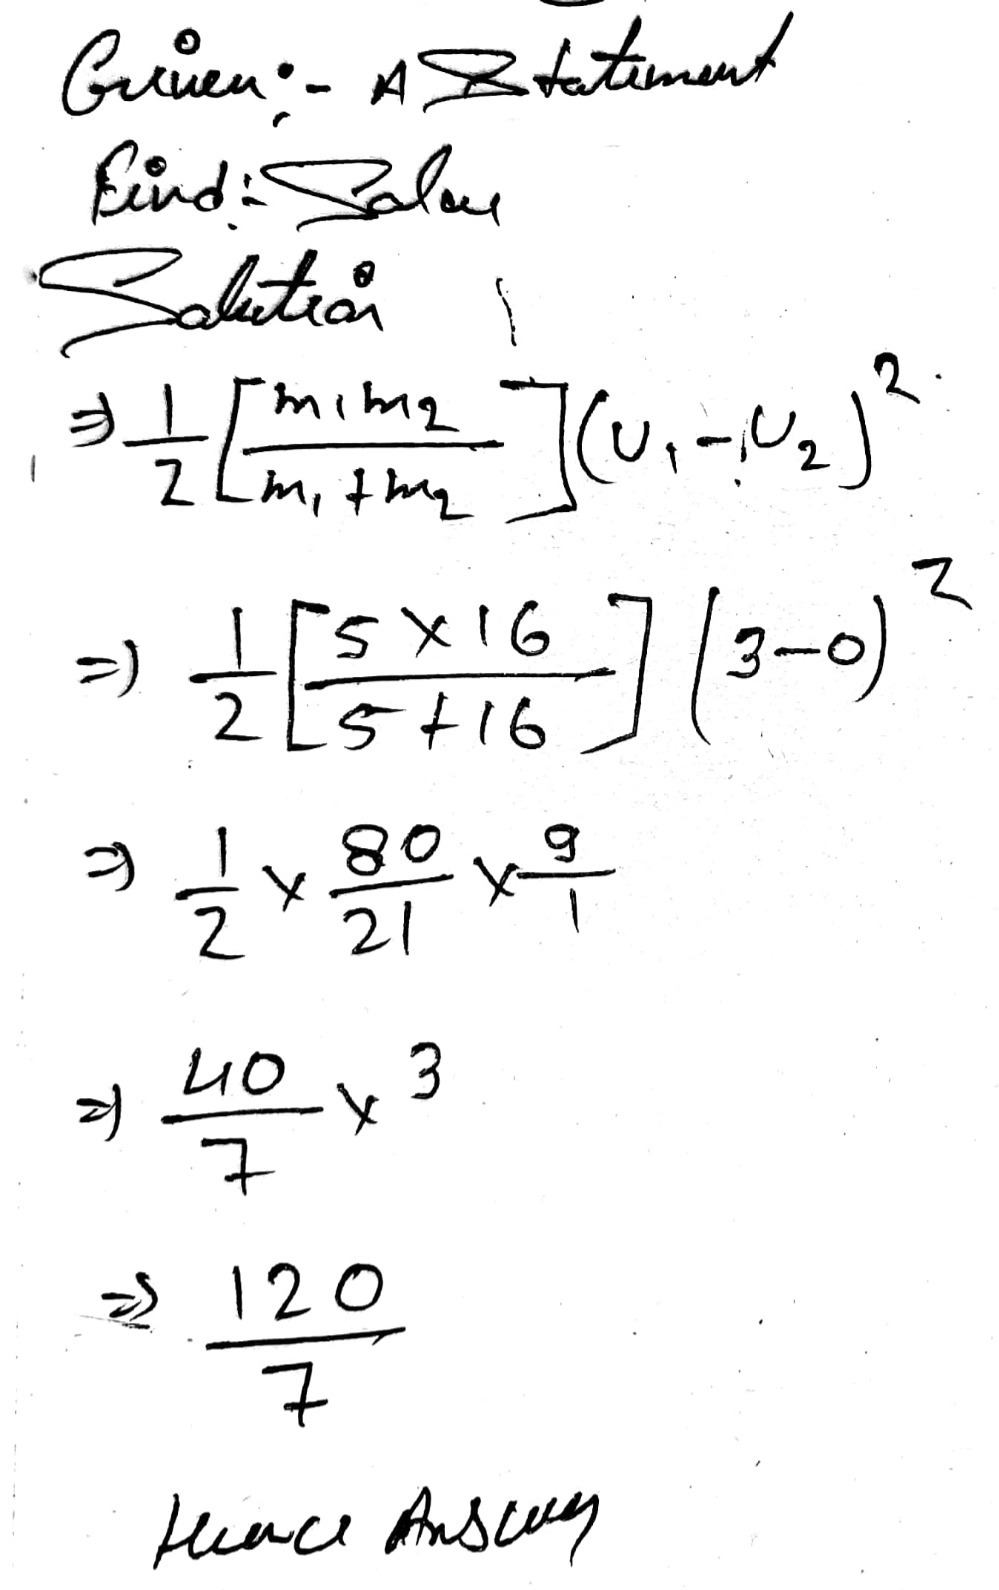 Given:- A Statement
Find:- Solve
Solution
⇒ 1/2 [m1m2 / m1+m2] (U1-U2)²
⇒ 1/2 [5×16 / 5+16] (3-0)²
⇒ 1/2 × 80/21 × 9/1
⇒ 40/7 × 3
⇒ 120/7
Hence Answer